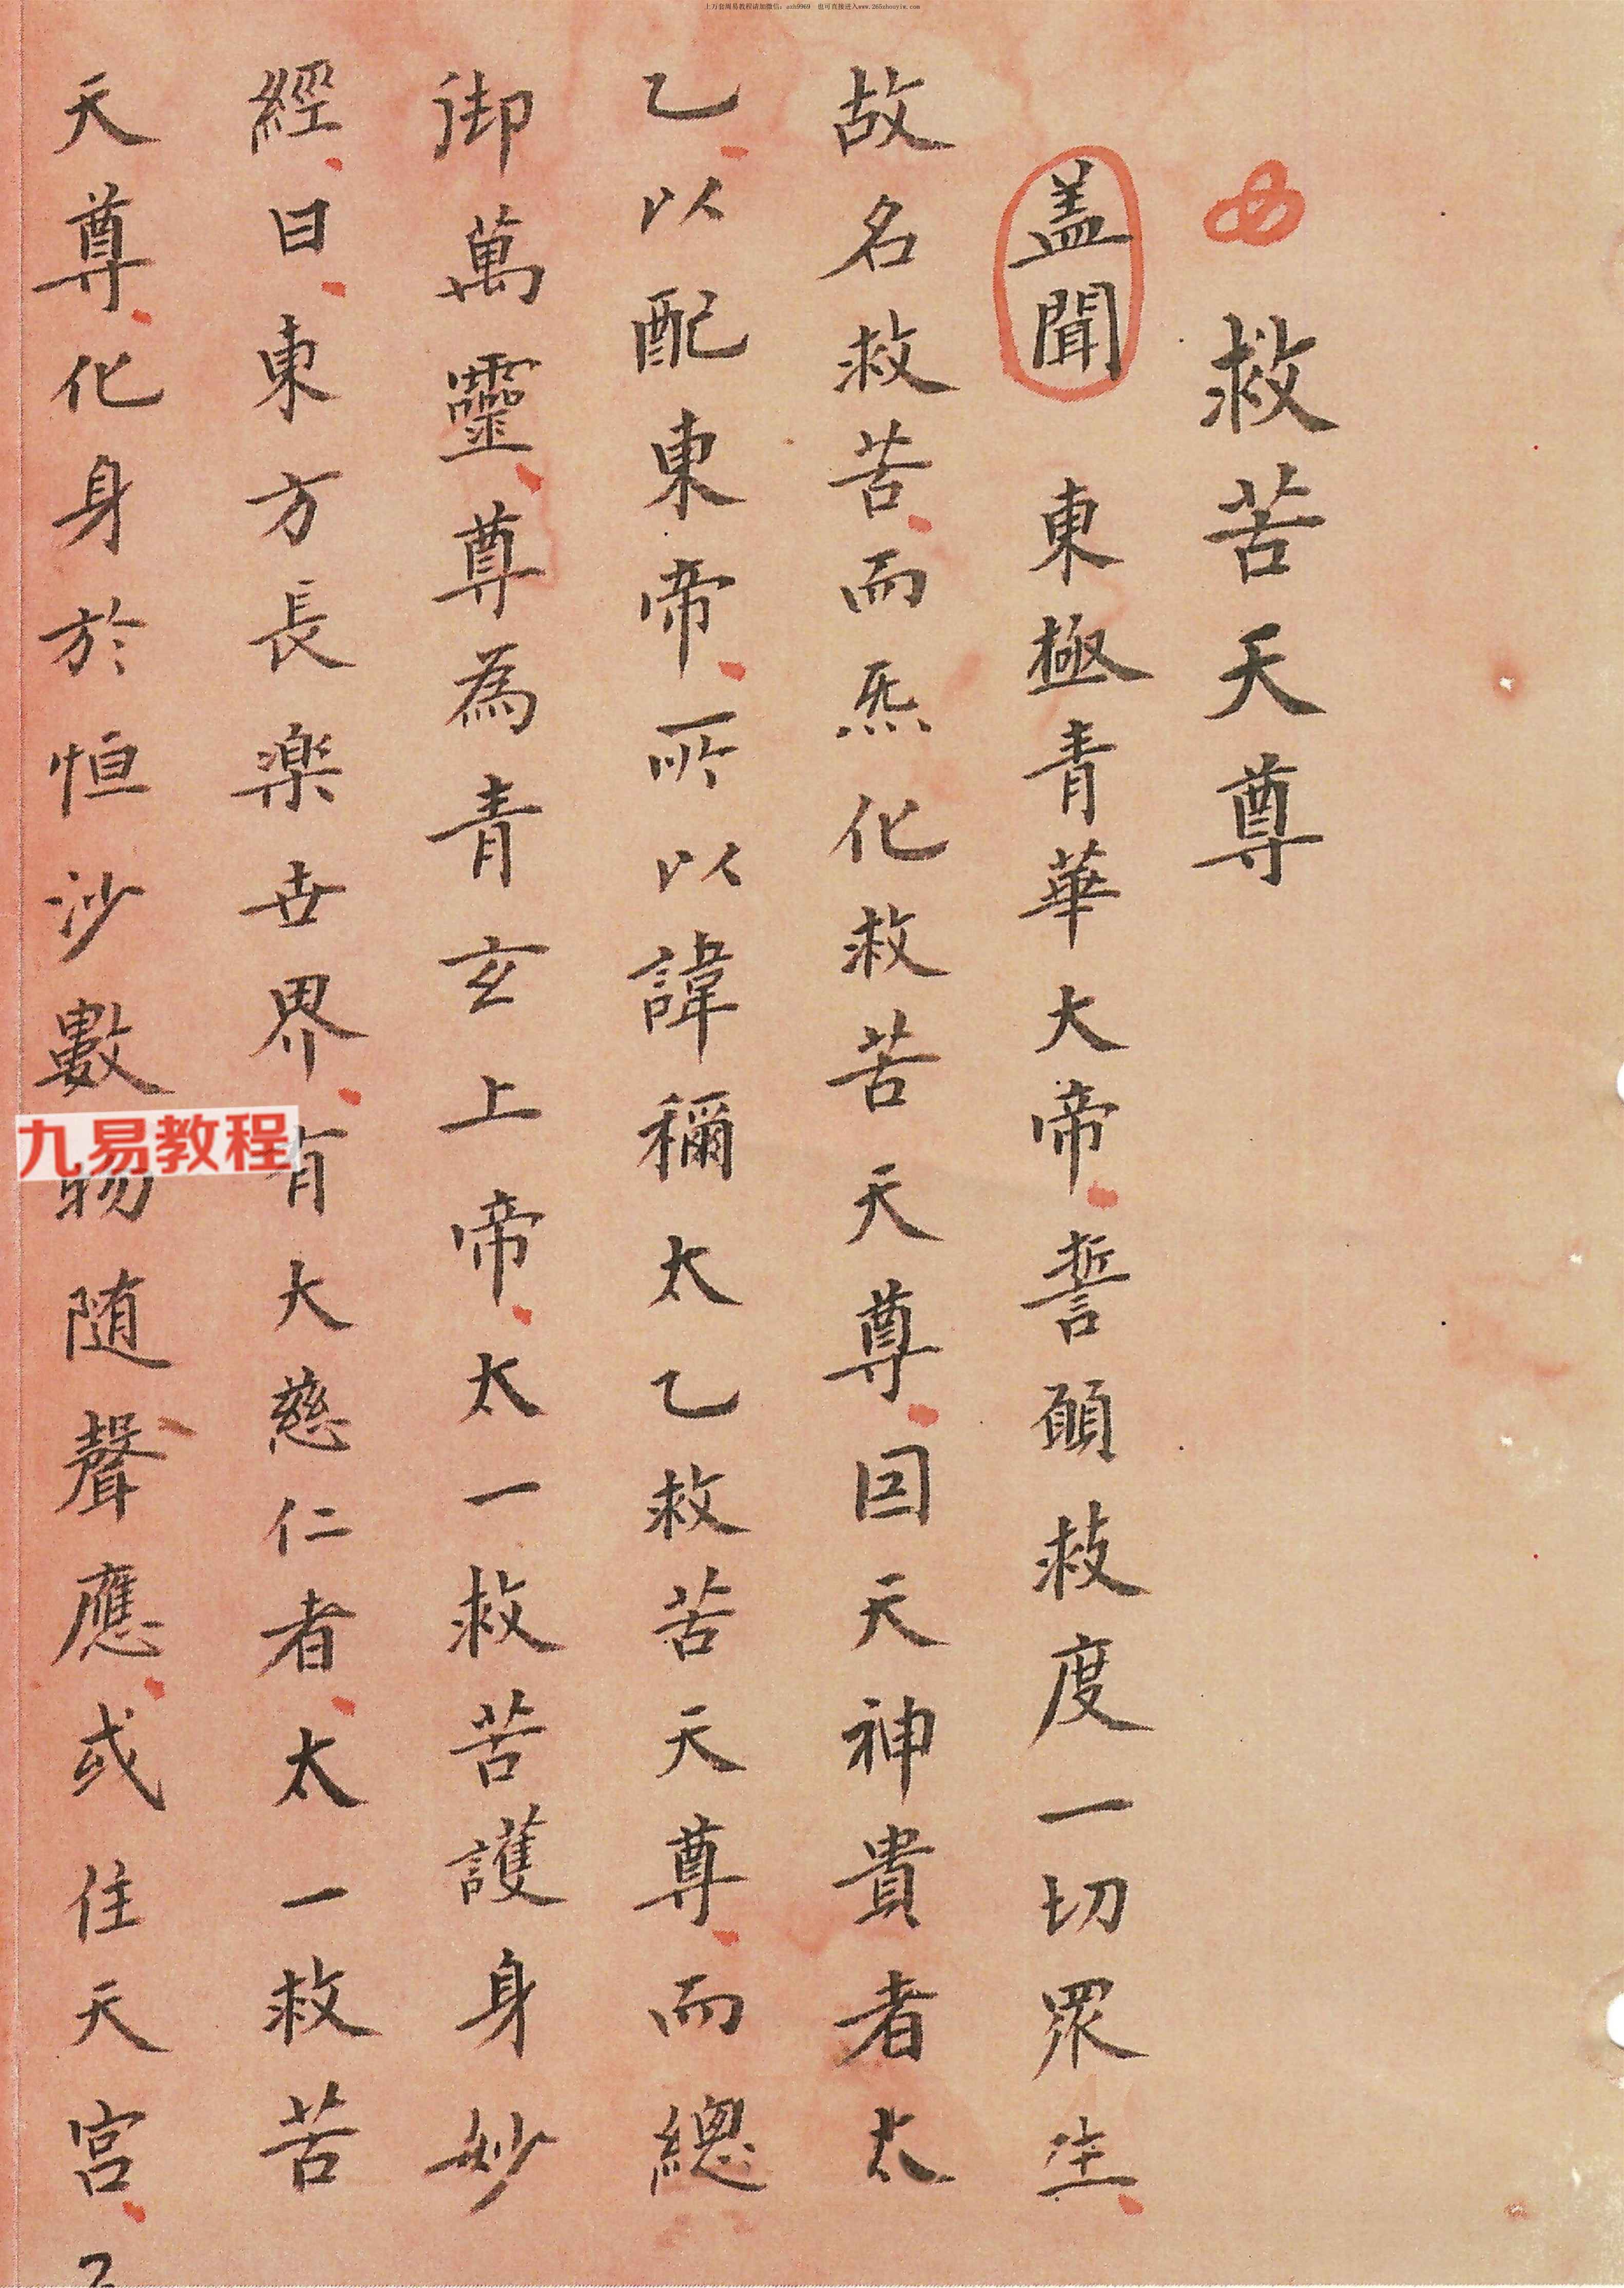 上万套周易教程请加微信：axh9969 也可直接进入www.265zhouyiw.com
救苦天尊
盖聞 東極青華大帝誓願救度一切眾生
故名救苦而炁化救苦天尊因天神貴者太
乙以配東帝所以諱稱太乙救苦天尊而總
御萬靈尊為青玄上帝太一救苦護身妙
經曰東方長楽世界有大慈仁者太一救苦
天尊化身於恒沙數物随聲應或住天宮
九易教程